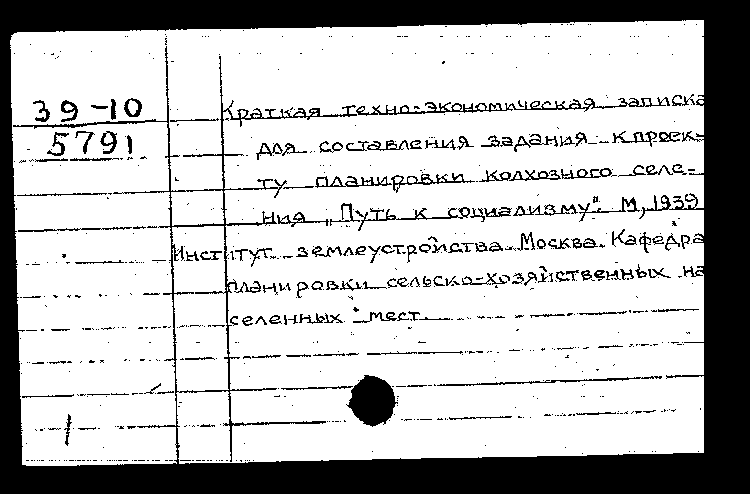 39-10
5791
Краткая техно-экономическая записка
для составления задания к проек-
ту планировки колхозного селе-
ния "Путь к социализму". М, 1939
Институт землеустройства. Москва. Кафедра
планировки сельско-хозяйственных на
селенных мест.
1